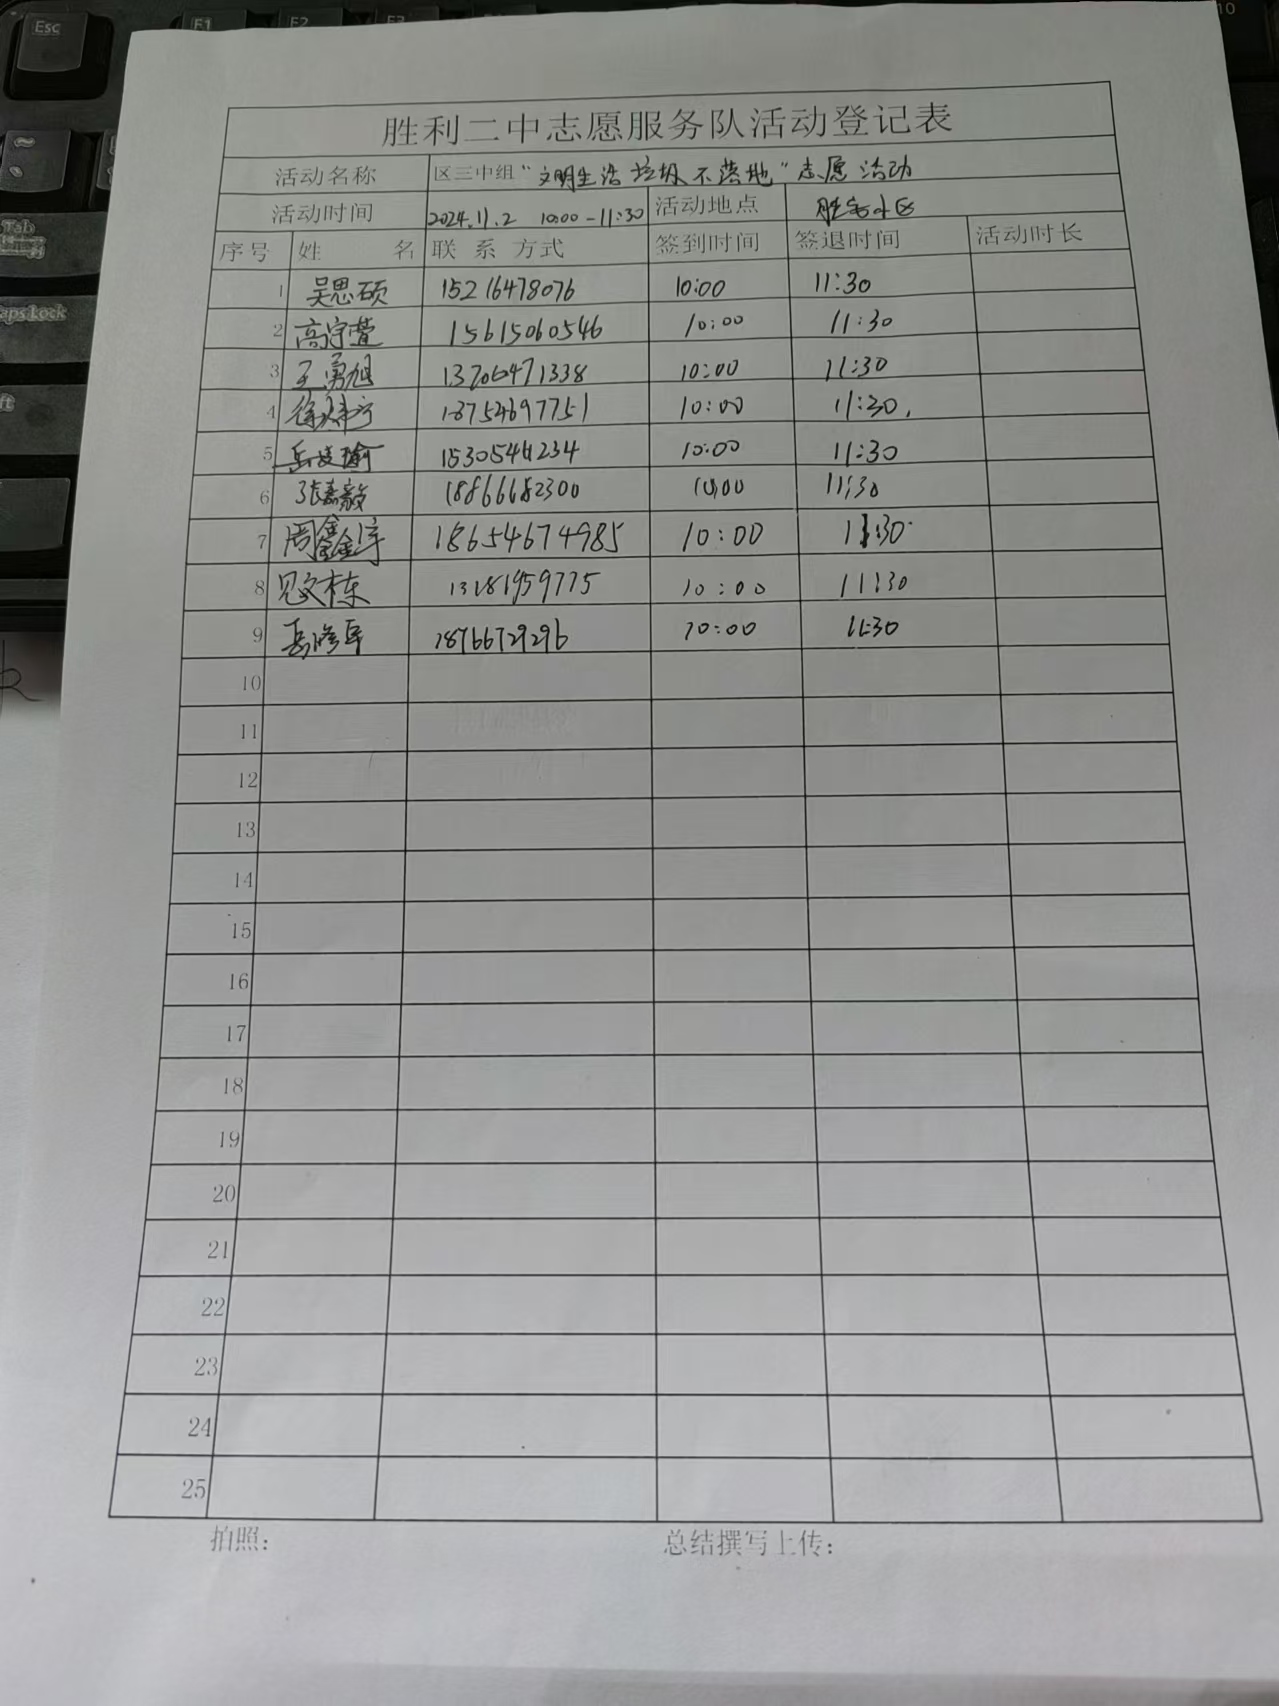 胜利二中志愿服务队活动登记表
活动名称 区三中组“文明生活 垃圾不落地”志愿活动
活动时间 2024.11.2 10:00-11:30 活动地点 胜宏小区
序号 姓名 联系方式 签到时间 签退时间 活动时长
1 吴思硕 15216478076 10:00 11:30
2 高宇萱 15615060546 10:00 11:30
3 王勇旭 13706471338 10:00 11:30
4 18754697751 10:00 11:30
5 15305461234 10:00 11:30
6 张嘉毅 18866682300 10:00 11:30
7 周鑫鑫宇 18654674985 10:00 11:30
8 文栋 13181959775 10:00 11:30
9 18766729296 10:00 11:30
10
11
12
13
14
15
16
17
18
19
20
21
22
23
24
25
拍照： 总结撰写上传：
Esc
F1
F2
F3
10
Tab
Caps Lock